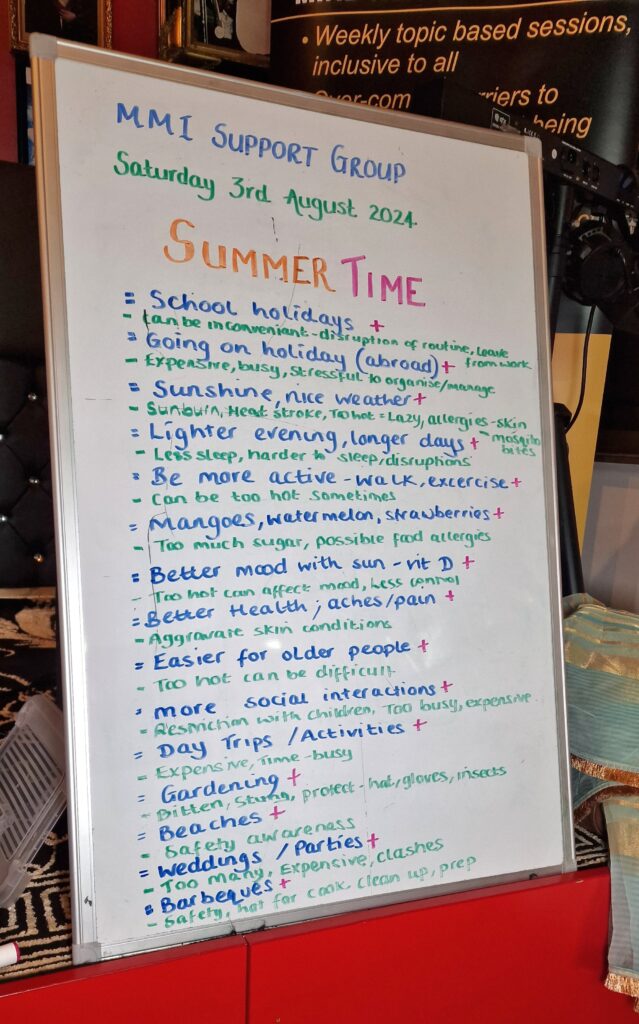 • Weekly topic based sessions,
inclusive to all
Over-com rriers to
being
MMI SUPPORT GROUP
Saturday 3rd August 2024.
SUMMER TIME
= School holidays +
- Can be inconvenient - disruption of routine, leave
from work
= Going on holiday (abroad) +
- Expensive, busy, stressful to organise/manage
= Sunshine, nice weather +
- Sunburn, Heat stroke, Too hot = Lazy, allergies - skin
- mosqito
bites
= Lighter evening, longer days +
- Less sleep, harder to sleep, disruptions
= Be more active - walk, excercise +
- Can be too hot sometimes
= Mangoes, watermelon, strawberries +
- Too much sugar, possible food allergies
= Better mood with sun - vit D +
- Too hot can affect mood, Less control
= Better Health; aches/pain +
- Aggravate skin conditions
= Easier for older people +
- Too hot can be difficult
= more social interactions +
- Restriction with children, Too busy, expensive
= Day Trips / Activities +
- Expensive, Time - busy
= Gardening +
- Bitten, stung, protect - hat, gloves, insects
= Beaches +
- Safety awareness
= Weddings / Parties +
- Too many, Expensive, clashes
= Barbeques +
- Safety, hot for cook, clean up, prep